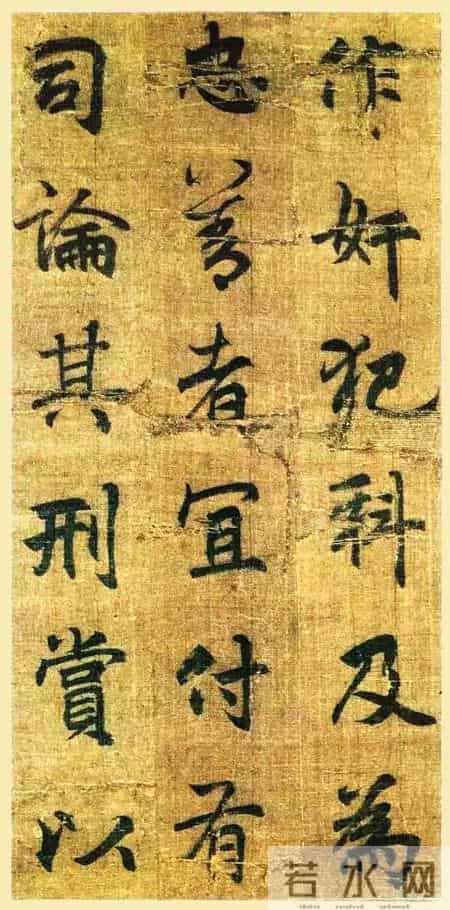 作奸犯科及為
忠善者宜付有
司論其刑賞以
若水网